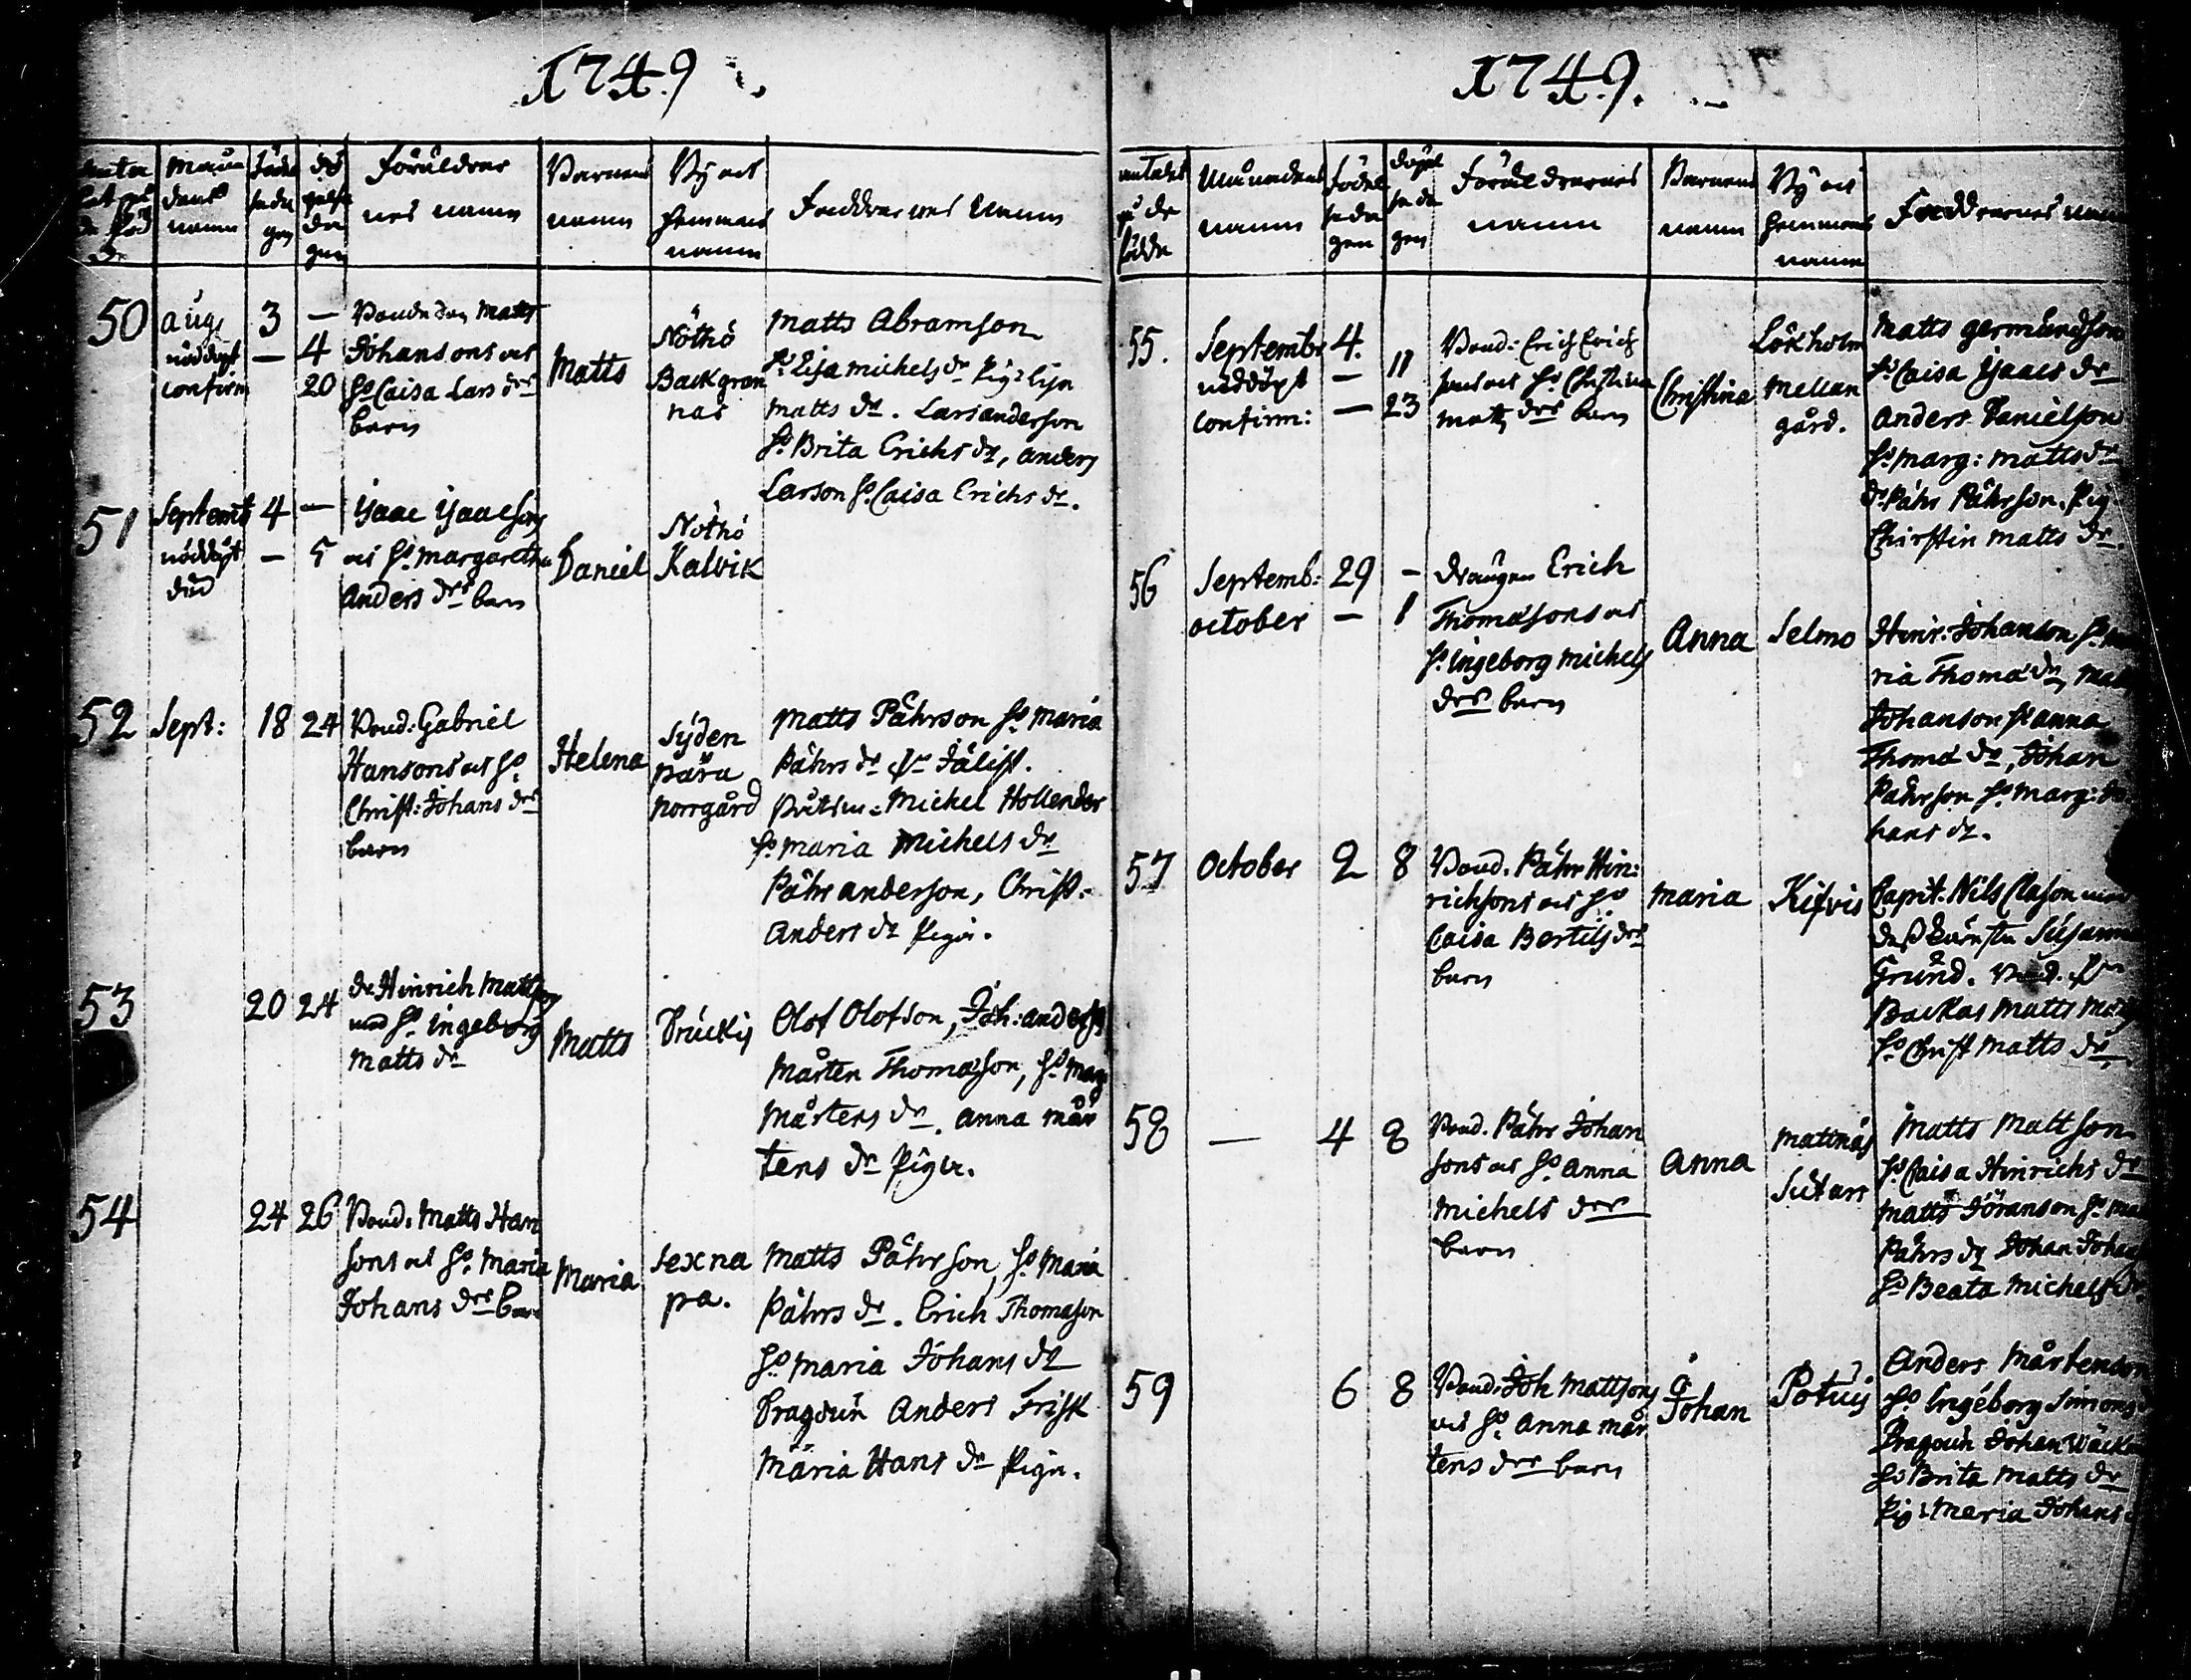 1749
Föräldrar
nes namn
Barnens
namn
By och
hemmans
namn
Faddrarnes Namn
50
aug
nöddöpt
confirm
3
—
—
4
20
Bonden Matts
Johansons och
h: Caisa Lars drs
barn
Matts
Nöthö
Backgran
nas
Matts Abramson
h: Lisa Michels dr Pig: Lisa
Matts dr. Lars anderson
h: Brita Erichs dr, anders
Larson h: Caisa Erichs dr.
51
Septemb
nöddöpt
död
4
—
—
5
Isaac Isaacsons
och h: Margaretha
Anders drs barn
Daniel
Nöthö
Kalvik
52
Sept:
18
24
Bond: Gabriel
Hansons och h:
Christ: Johans drs
barn
Helena
Syden
pära
norrgård
Matts Pährson h: Maria
Pährs dr
Michel Hollender
h: Maria Michels dr
Pähr anderson, Christ:
Anders dr Pigor.
53
20
24
dr Hinrich Mattson
med h: Ingeborg
Matts dr
Matts
Drückis
Olof Olofson, Joh: anders
Mårten Thomasson, h: Marg
Mårtens dr. Anna Mår
tens dr Pigor.
54
24
26
Bond: Matts Han
sons och h: Maria
Johans drs barn
Maria
Sexna
pa.
Matts Pährson, h: Maria
Pährs dr. Erich Thomason
h: Maria Johans dr
Dragoun Anders Frisk
Maria Hans dr Piga.
1749.
antalet
på de
födde
Månadens
namn
Födel
seda
gen
döpel
seda
gen
Föräldrarnes
namn
Barnens
namn
By och
hemmans
namn
Faddrarnes namn
55.
September
nöddöpt
confirm:
4.
—
—
11
23
Bond: Erich Erich
sons och h: Christina
Matts drs barn
Christina
Lökholm
Mellan
gård.
Matts germundson
h: Caisa Isaacs dr
Anders Danielson
h: Marg: Matts dr
dr Pähr Pährson. Pig:
Chirstin Matts dr.
56
Septemb:
october
29
—
—
1
drängen Erich
Thomasons och
h: Ingeborg Michels
drs barn
Anna
Selmo
Hinr: Johanson, h: Ma
ria Thomæ dr, Matts
Johanson h: anna
Thomæ dr, Johan
Pährson h: Marg: Jo
hans dr.
57
October
2
8
Bond. Pähr Hin:
richsons och h:
Caisa Bertils drs
barn
Maria
Kifvis
Capit. Nils Clason med
Susanna
Grund.
Backas Matts Matts
h: Christ Matts dr
58
—
4
8
Bond. Pähr Johan
sons och h: Anna
Michels drs
barn
Anna
Mattnäs
Sutars
Matts Mattson
h: Caisa Hinrichs dr
Matts Jöranson h: Ma
Pährs dr Johan Johans
h: Beata Michels dr.
59
6
8
Bond: Joh Mattsons
och h: Anna Mår
tens drs barn
Johan
Potuis
Anders Mårtenson
h: Ingeborg Simons
Dragoun Johan Wäck
h: Brita Matts dr
Pig: Maria Johans